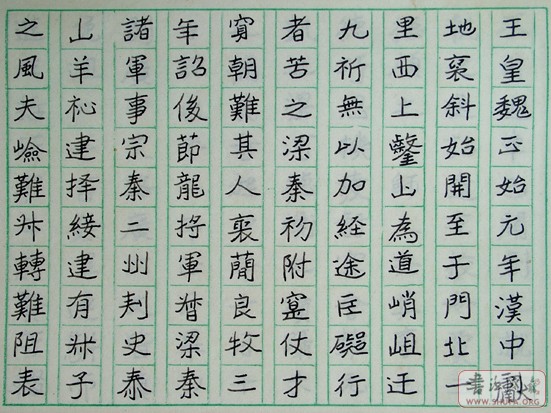 王皇魏正始元年漢中獻
地褒斜始開至于門北一
里西上鑿山為道峭岨迂
九祈無以加経途臣礙行
者苦之梁秦初附寔仗才
朝難其人褒簡良牧三
年詔後節龍将軍督梁秦
諸軍事宗秦二州刺史泰
山羊祉建择綏建有叔子
之風夫嶮難升轉難阻表
SHUFA.ORG